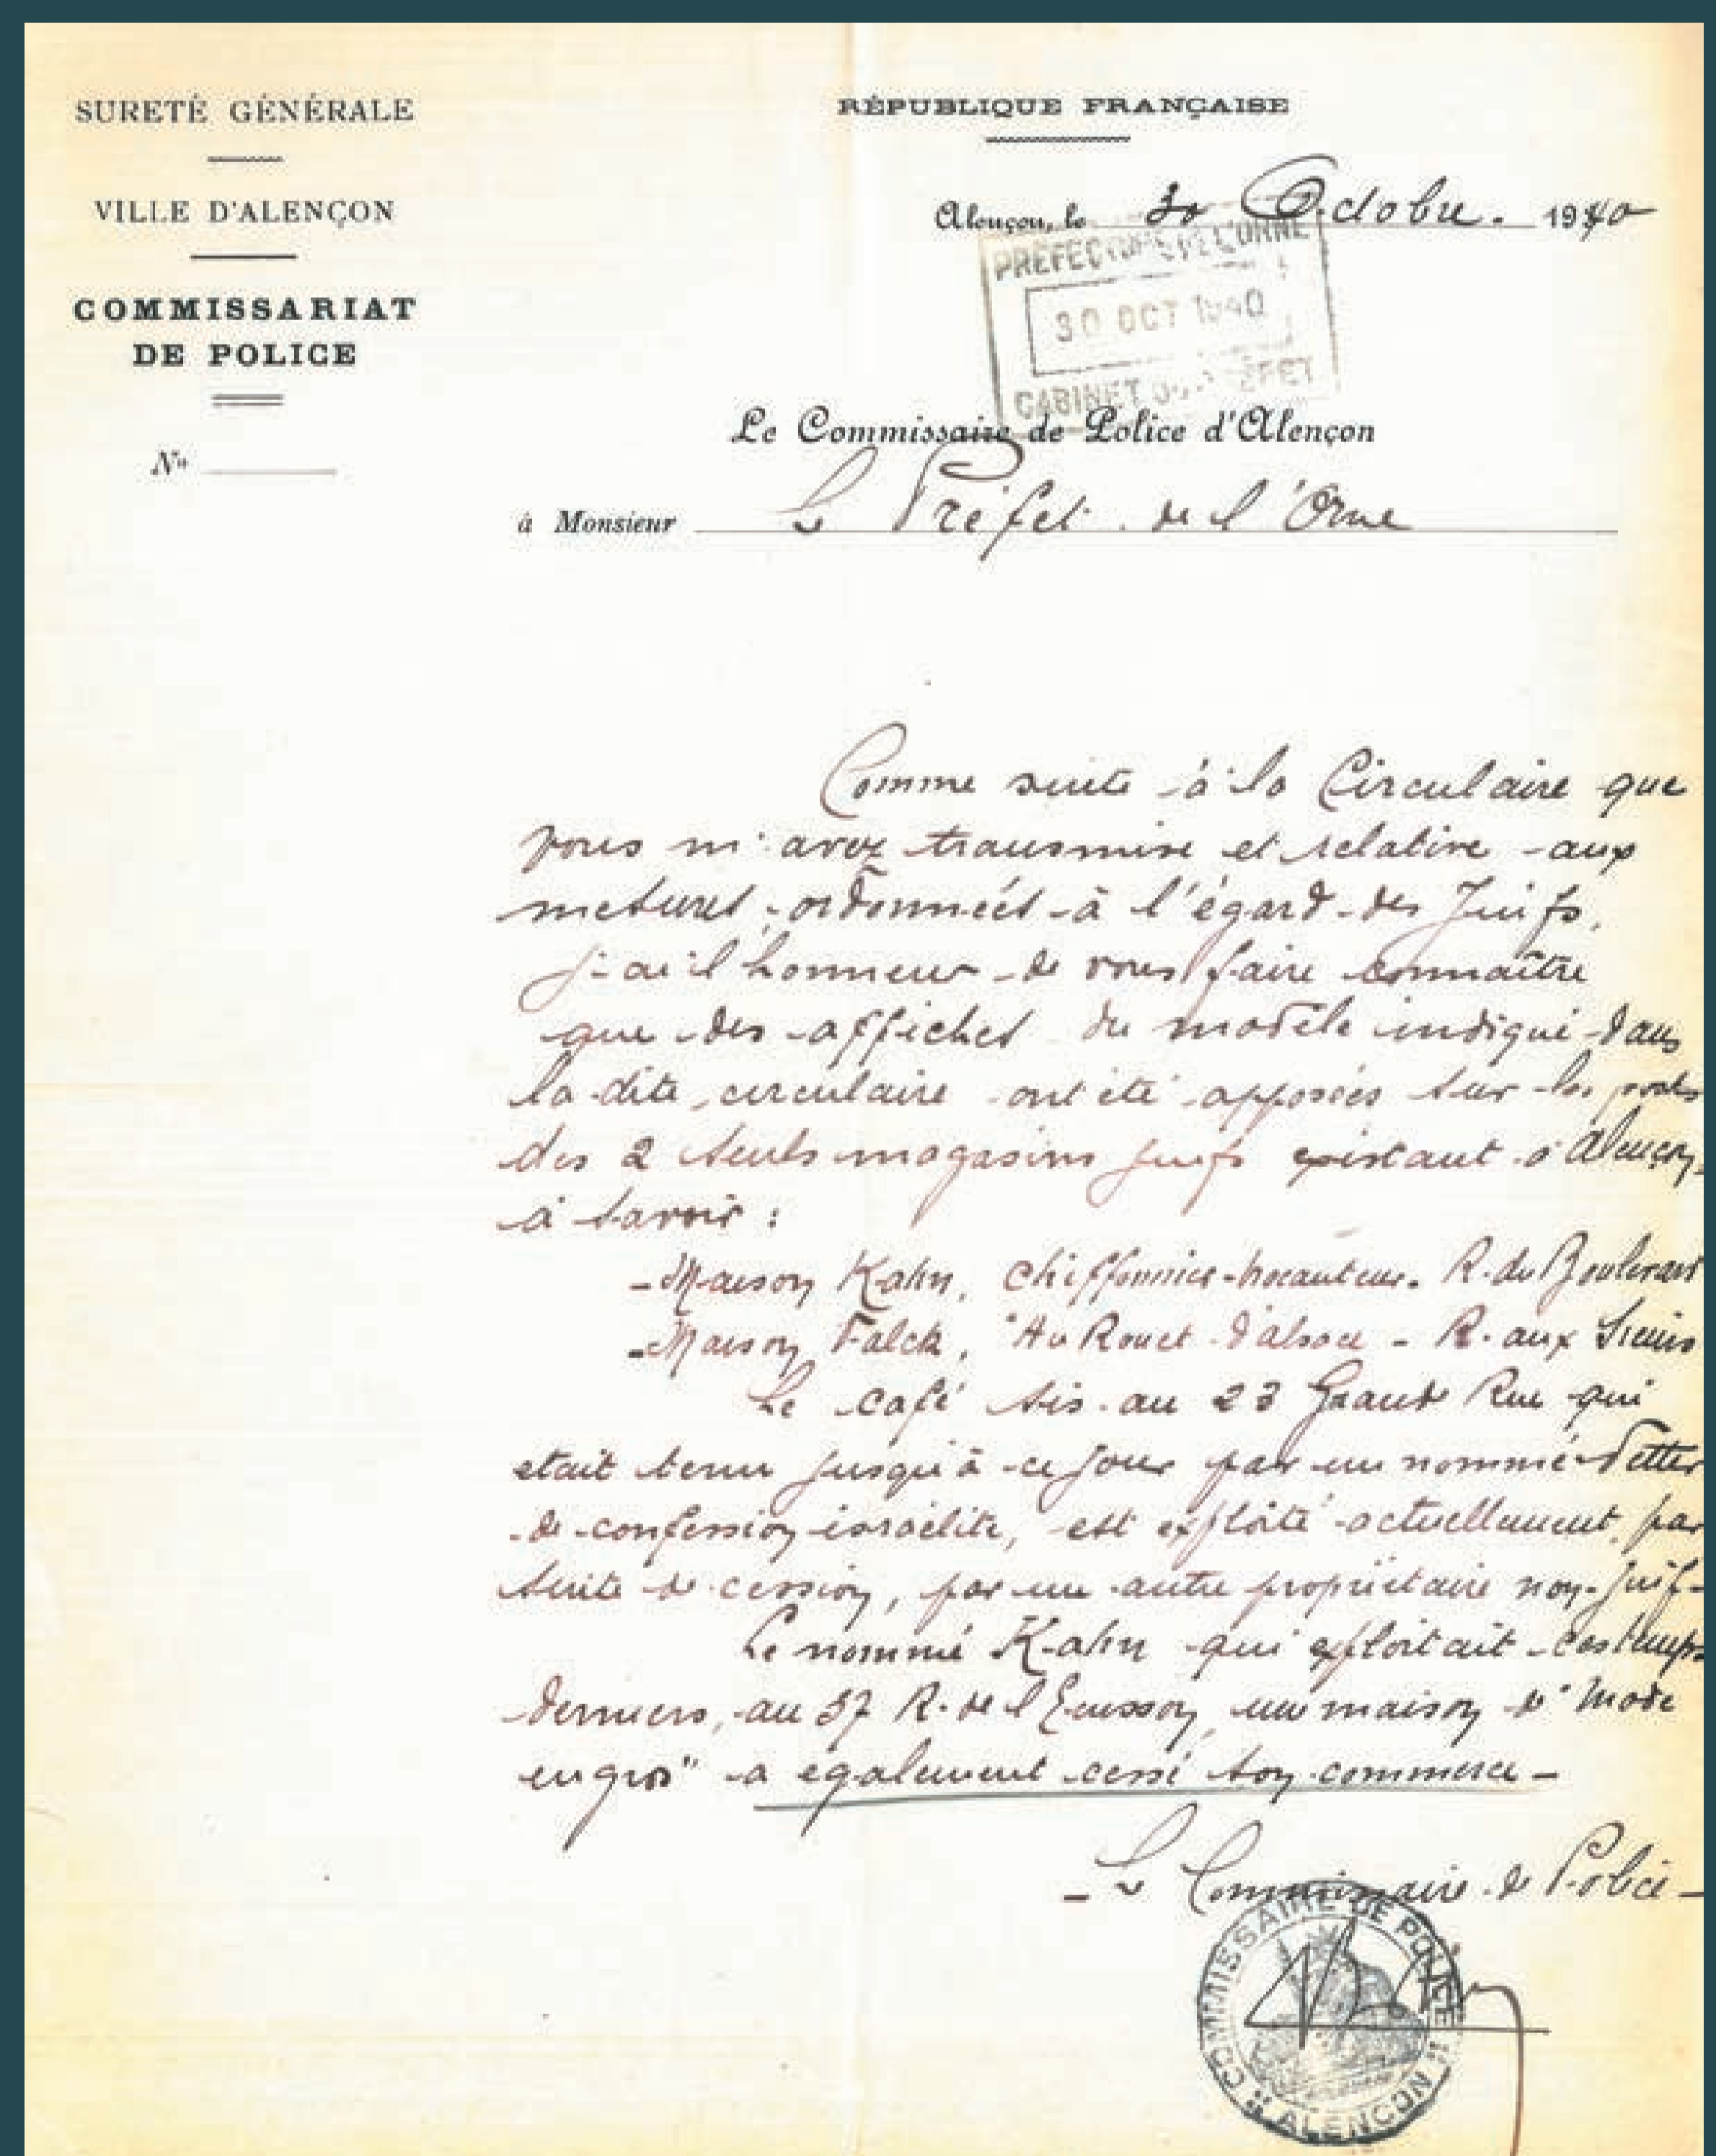 SURETÉ GÉNÉRALE
VILLE D'ALENÇON
COMMISSARIAT
DE POLICE
No
RÉPUBLIQUE FRANÇAISE
Alençon, le 30 Octobre. 1940
PRÉFECTURE DE L'ORNE
30 OCT 1940
CABINET DU PRÉFET
Le Commissaire de Police d'Alençon
à Monsieur Le Préfet de l'Orne
Comme suite à la Circulaire que
vous m'avez transmise et relative aux
mesures ordonnées à l'égard des Juifs,
j'ai l'honneur de vous faire connaître
que des affiches du modèle indiqué dans
la dite circulaire ont été apposées sur les portes
des 2 seuls magasins juifs existant à Alençon,
à savoir :
- Maison Kahn, chiffonnier-brocanteur. R. du Boulevard
- Maison Falck, "Au Rouet d'alsace - R. aux Sieurs
Le café sis au 23 Grande Rue qui
etait tenu jusqu'à ce jour par un nommé
de confession israëlite, est exploité actuellement, par
suite de cession, par un autre propriétaire non-juif-
Le nommé Kahn qui exploitait ces temps
derniers, au 37 R. de l'Ecusson, une maison de "Mode
en gros" a egalement cessé son commerce -
- Le Commissaire de Police -
COMMISSAIRE DE POLICE
ALENÇON